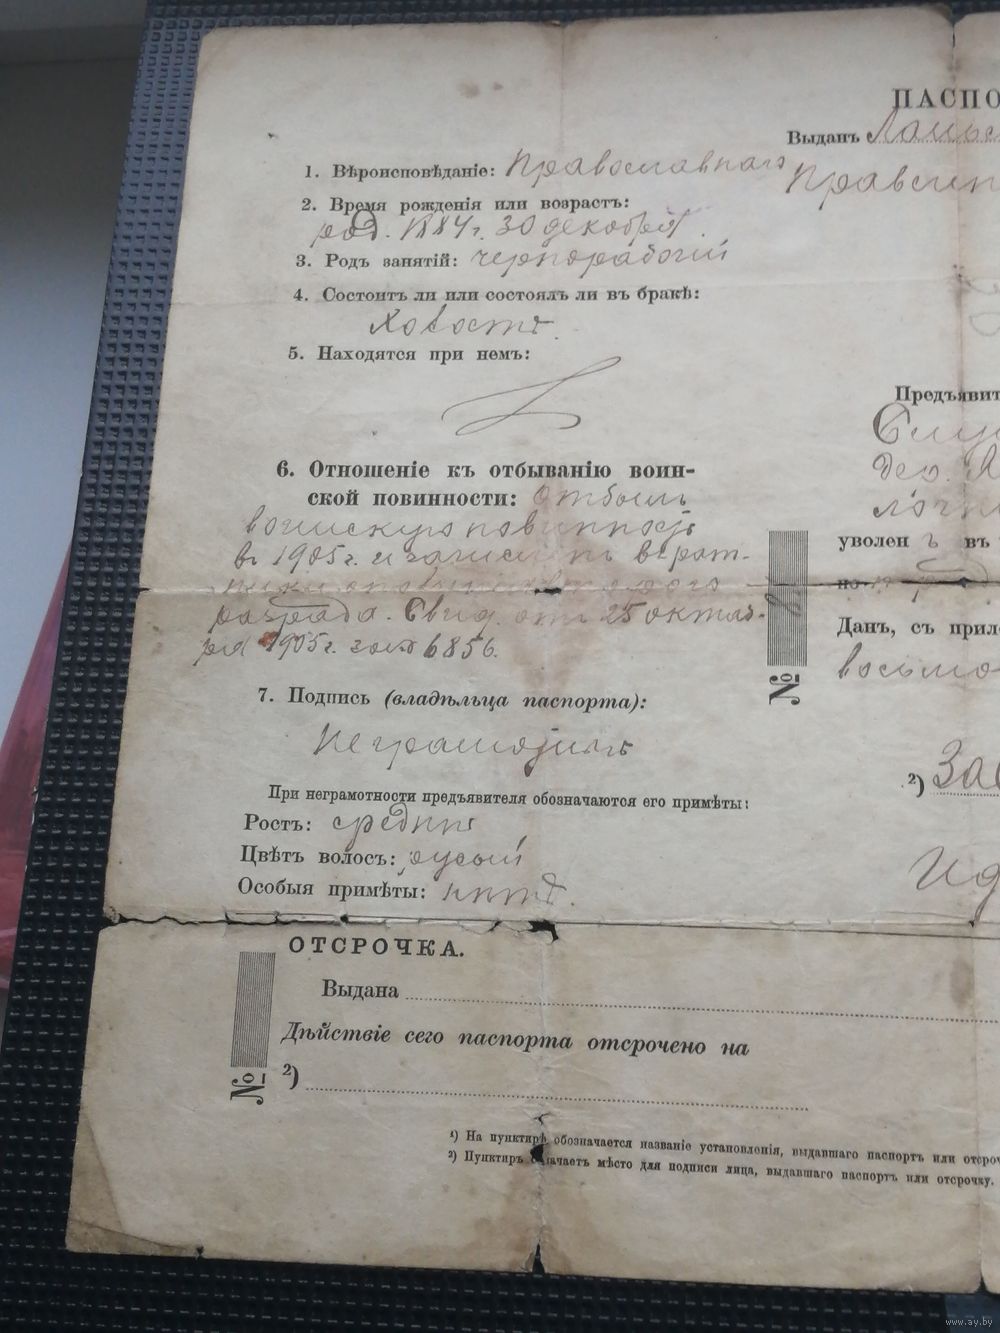 ПАСПО
Выданъ
1. Вѣроисповѣданіе: Православнаго
2. Время рожденія или возрастъ:
род. 1884 г. 30 декабря.
3. Родъ занятій: чернорабочій
4. Состоитъ ли или состоялъ ли въ бракѣ:
Холостъ
5. Находятся при немъ:
Предъявит
6. Отношеніе къ отбыванію воин-
ской повинности: отбылъ
воинскую повинность
въ 1905 г. и зачисленъ въ рат-
ники ополченія второго
разряда. Свид. отъ 25 октяб-
ря 1905 г. за № 6856.
уволен ъ въ
№
Данъ, съ прил
7. Подпись (владѣльца паспорта):
Неграмотный
2)
При неграмотности предъявителя обозначаются его примѣты:
Ростъ: средній
Цвѣтъ волосъ: русый
Особыя примѣты: нѣтъ.
ОТСРОЧКА.
Выдана
Дѣйствіе сего паспорта отсрочено на
2)
№
1) На пунктирѣ обозначается названіе установленія, выдавшаго паспортъ или отсроч
2) Пунктиръ означаетъ мѣсто для подписи лица, выдавшаго паспортъ или отсрочку.
www.ay.by